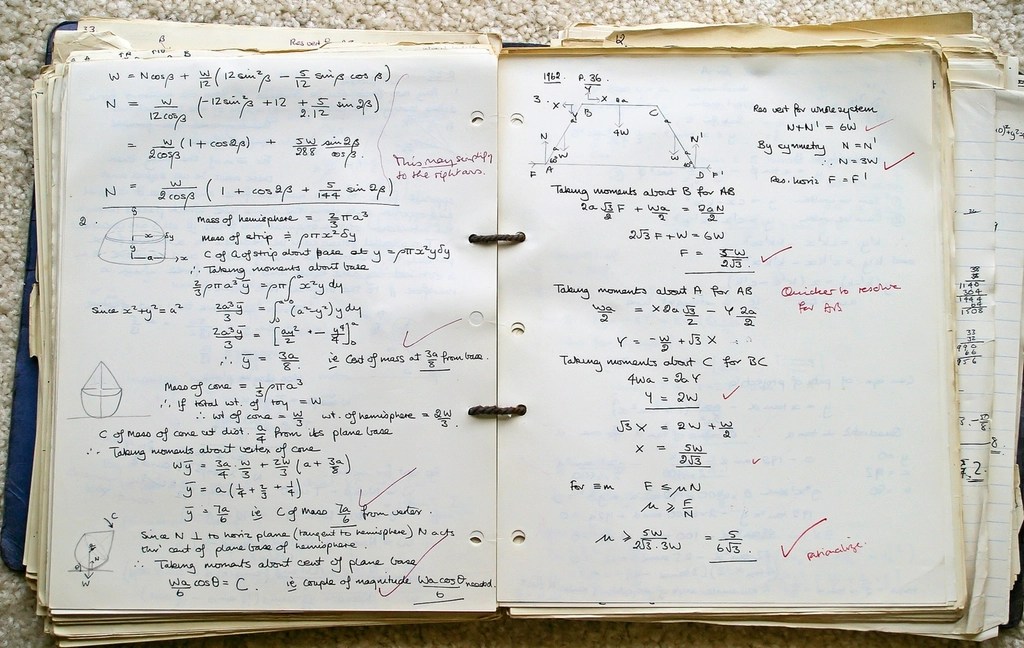 33
W = Ncosβ + W/12 (12 sin²β − 5/12 sinβ cosβ)
N = W/12cosβ (−12 sin²β + 12 + 5/2.12 sin 2β)
= W/2cosβ (1 + cos2β) + 5W/288 sin2β/cosβ
This may simplify
to the right ans.
N = W/2cosβ (1 + cos2β + 5/144 sin 2β)
2.
Mass of hemisphere = 2/3 πa³
Mass of strip ≑ ρπx²δy
C of G of strip about base at y = ρπx²yδy
∴ Taking moments about base
2/3 ρπa³ȳ = ρπ∫x²y dy
Since x²+y² = a² 2a³ȳ/3 = ∫(a²−y²)y dy
2a³ȳ/3 = [ay²/2 + − y⁴/4]
∴ ȳ = 3a/8. ie Cent of mass at 3a/8 from base.
Mass of cone = 1/3 ρπa³
∴ If total wt. of toy = W
∴ wt of cone = W/3 wt. of hemisphere = 2W/3.
C of Mass of cone at dist. a/4 from its plane base
∴ Taking moments about vertex of cone
Wȳ = 3a/4 . W/3 + 2W/3 (a + 3a/8)
ȳ = a(1/4 + 2/3 + 1/4)
ȳ = 7a/6 ie C of Mass 7a/6 from vertex.
Since N ⊥ to horiz plane (tangent to hemisphere) N acts
thro' cent of plane base of hemisphere.
∴ Taking moments about cent of plane base
Wa/6 cosθ = C. ie couple of magnitude Wa cosθ/6 needed.
2.
1962. P. 36.
3.
Res vert for whole system
N+N' = 6W
By symmetry N = N'
∴ N = 3W
Res. horiz F = F'
Taking moments about B for AB
2a √3/2 F + Wa/2 = 2aN/2
2√3 F + W = 6W
F = 5W/2√3.
Taking moments about A for AB
Quicker to resolve
for AB
Wa/2 = X 2a √3/2 − Y 2a/2
Y = −W/2 + √3 X
Taking moments about C for BC
4Wa = 2a Y
Y = 2W
√3 X = 2W + W/2
X = 5W/2√3
for ≡m F ≤ μN
μ ≥ F/N
μ ≥ 5W/2√3.3W = 5/6√3.
rationalize.